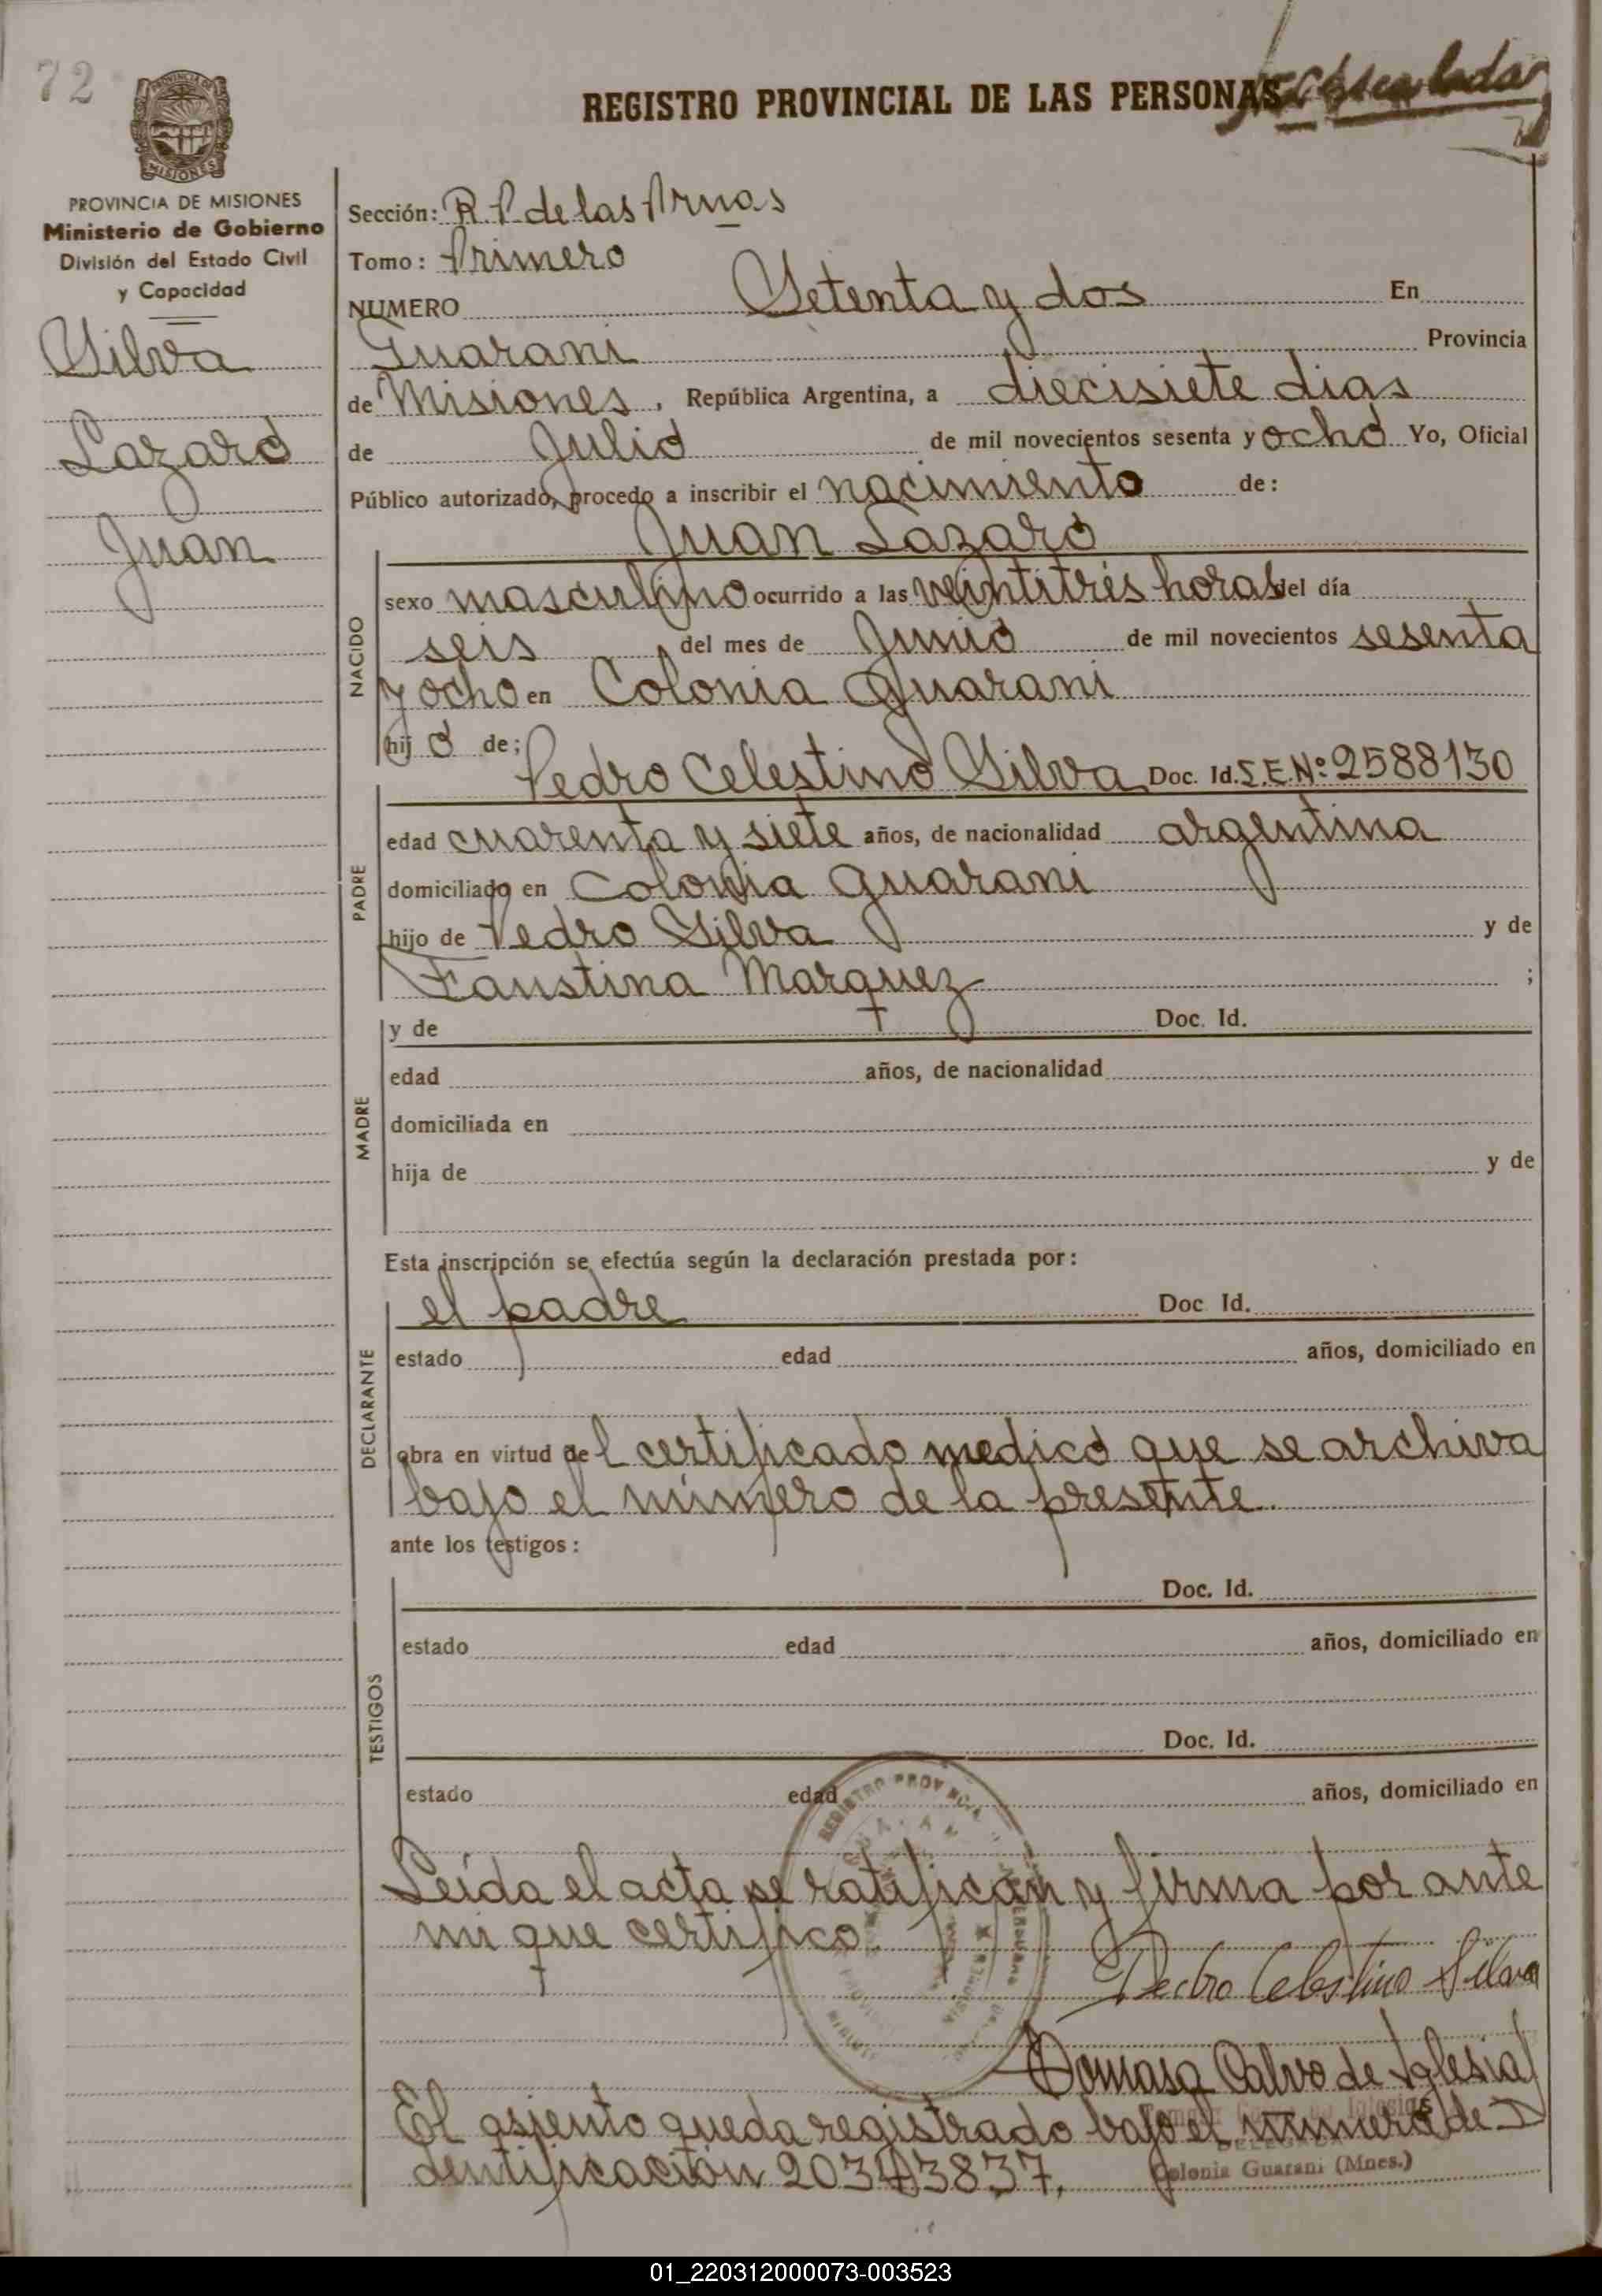 72
REGISTRO PROVINCIAL DE LAS PERSONAS
PROVINCIA DE MISIONES
Ministerio de Gobierno
División del Estado Civil
y Capacidad
Silva
Lazaro
Juan
Sección: R. P. de las
Tomo: Primero
NUMERO Setenta y dos En
Guarani Provincia
de Misiones, República Argentina, a diecisiete dias
de Julio de mil novecientos sesenta y ocho Yo, Oficial
Público autorizado, procedo a inscribir el nacimiento de:
Juan Lazaro
NACIDO
sexo masculino ocurrido a las veintitrés horas del día
seis del mes de Junio de mil novecientos sesenta
y ocho en Colonia Guarani
hijo de;
Pedro Celestino Silva Doc. Id. L.E.Nº 2588130
PADRE
edad cuarenta y siete años, de nacionalidad argentina
domiciliado en Colonia Guarani
hijo de Pedro Silva y de
Faustina Marquez ;
MADRE
y de Doc. Id.
edad años, de nacionalidad
domiciliada en
hija de y de
Esta inscripción se efectúa según la declaración prestada por:
DECLARANTE
el padre Doc Id.
estado edad años, domiciliado en
obra en virtud del certificado medico que se archiva
bajo el número de la presente.
ante los testigos:
TESTIGOS
Doc. Id.
estado edad años, domiciliado en
Doc. Id.
estado edad años, domiciliado en
REGISTRO PROVINCIAL
Leída el acta se ratifican y firma por ante
mi que certifico.
Pedro Celestino Silva
Tomasa Calvo de Iglesias
El asiento queda registrado bajo el número de I
dentificación 20343837.
DELEGADA
Colonia Guarani (Mnes.)
01_220312000073-003523